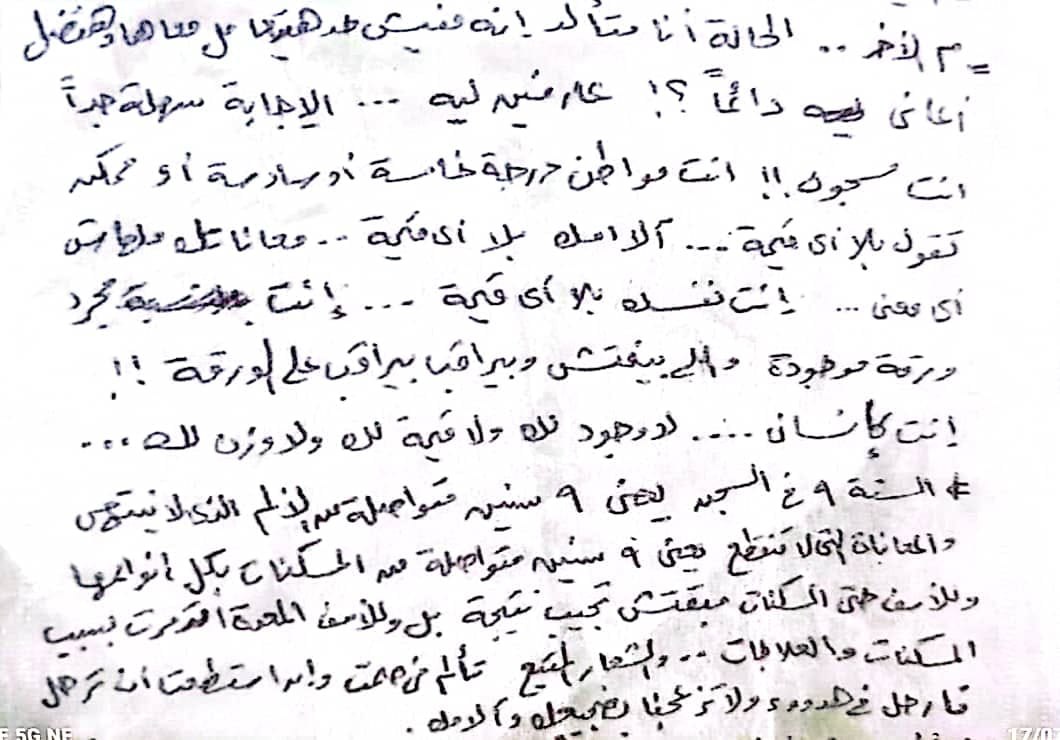 = م الآخر .. الحالة أنا متأكد إنه مفيش حد هيتعامل معاها وهفضل
أعانى دائماً ؟! عارفين ليه ... الإجابة سهلة جداً
انت مسجون !! انت مواطن درجة خامسة أو سادسة أو ممكن
تقول بلا أى قيمة ... آلامك بلا أى قيمة .. معاناتك ملهاش
أى معنى ... إنت نفسك بلا أى قيمة ... إنت مجرد
ورقة موجودة واللى بيفتش وبيراقب بيراقب على الورقة !!
إنت كإنسان .... لا وجود لك ولا قيمة لك ولا وزن لك ...
* السنة ٩ فى السجن يعنى ٩ سنين متواصلة من الألم الذى لا ينتهى
والمعاناة التى لا تنقطع يعنى ٩ سنين متواصلة من المسكنات بكل أنواعها
وللأسف حتى المسكنات مبقتش تجيب نتيجة بل وللأسف المعدة اتدمرت بسبب
المسكنات والعلاجات .. والشعار المتبع تألم فى صمت وإن استطعت أن ترحل
فارحل فى هدوء ولا تزعجنا بضجيجك وآلامك .
5G NE
17/0